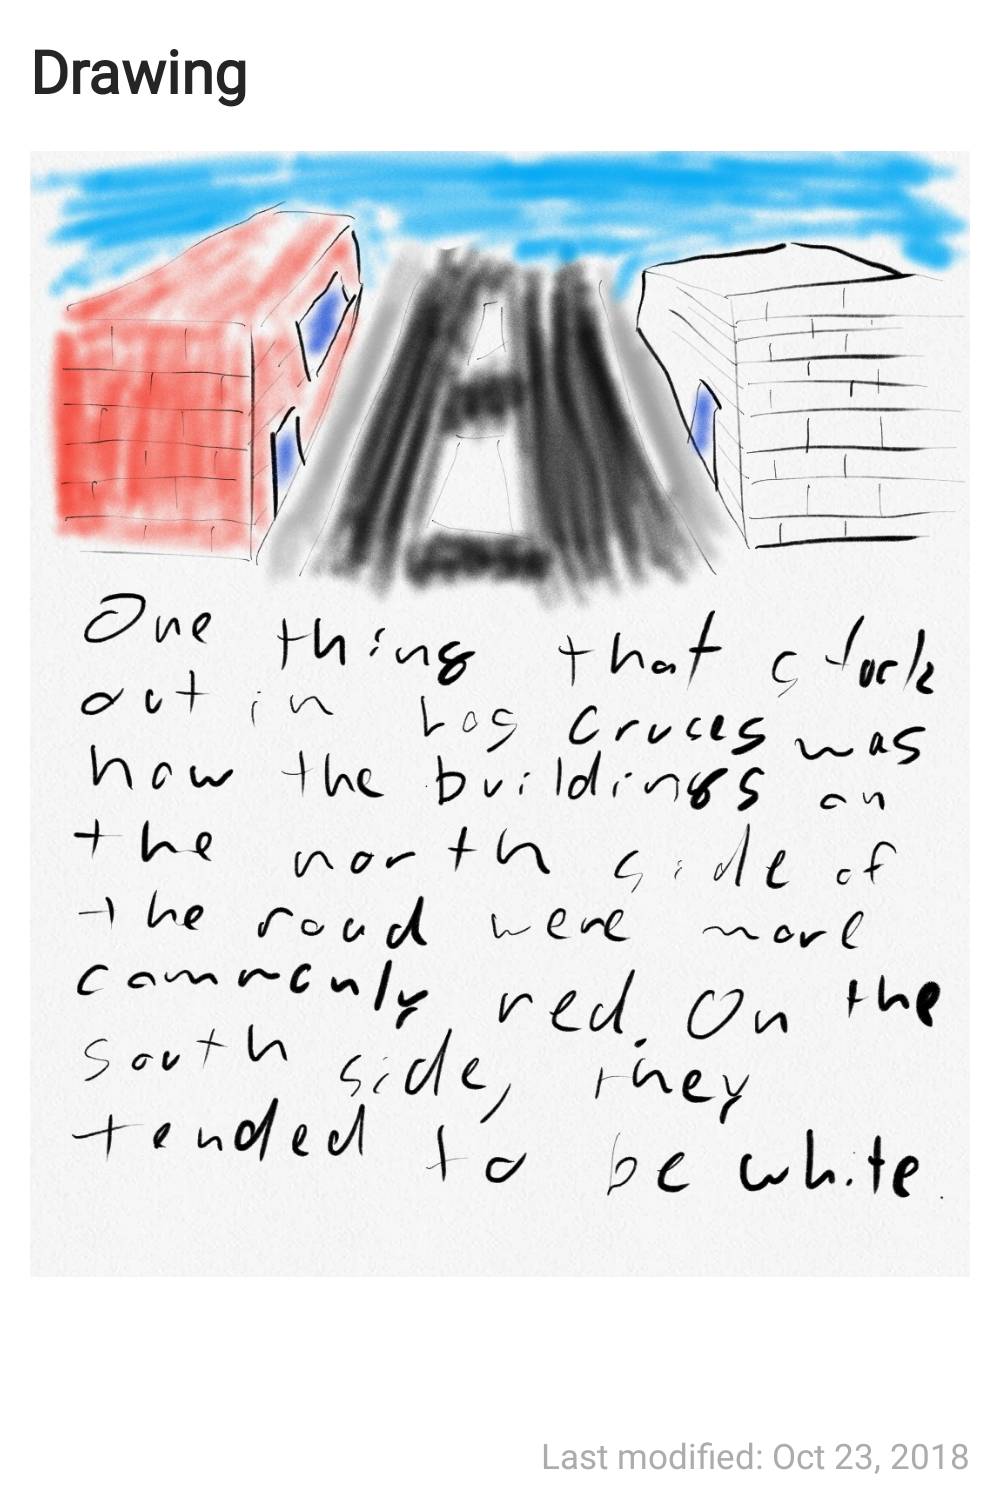 Drawing
One thing that stuck
out in Los Cruces was
how the buildings on
the north side of
the road were more
commonly red. On the
south side, they
tended to be white.
Last modified: Oct 23, 2018